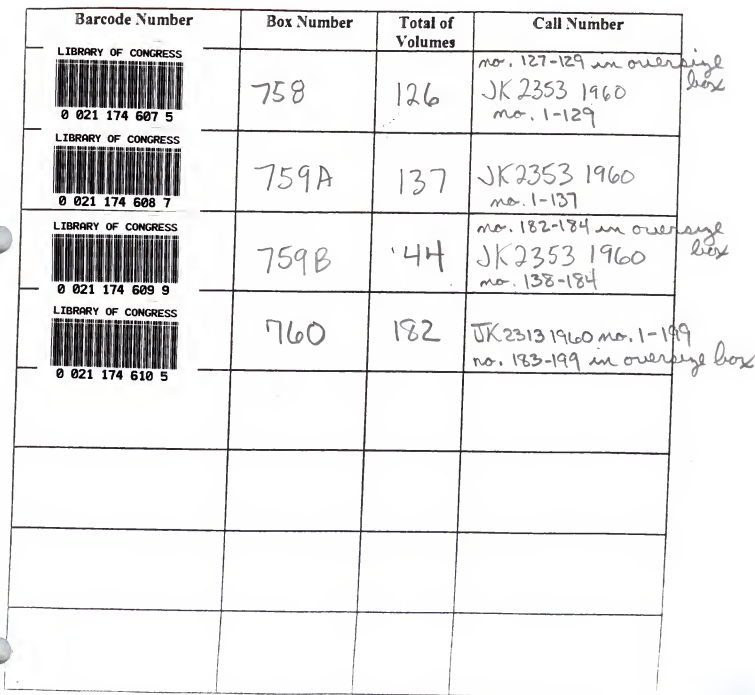 Barcode Number Box Number Total of Volumes Call Number
LIBRARY OF CONGRESS
0 021 174 607 5
758
126
no. 127-129 in oversize box
JK 2353 1960
no. 1-129
LIBRARY OF CONGRESS
0 021 174 608 7
759A
137
JK2353 1960
no. 1-137
LIBRARY OF CONGRESS
0 021 174 609 9
759B
44
no. 182-184 in oversize box
JK2353 1960
no. 138-184
LIBRARY OF CONGRESS
0 021 174 610 5
760
182
JK2313 1960 no. 1-199
no. 183-199 in oversize box